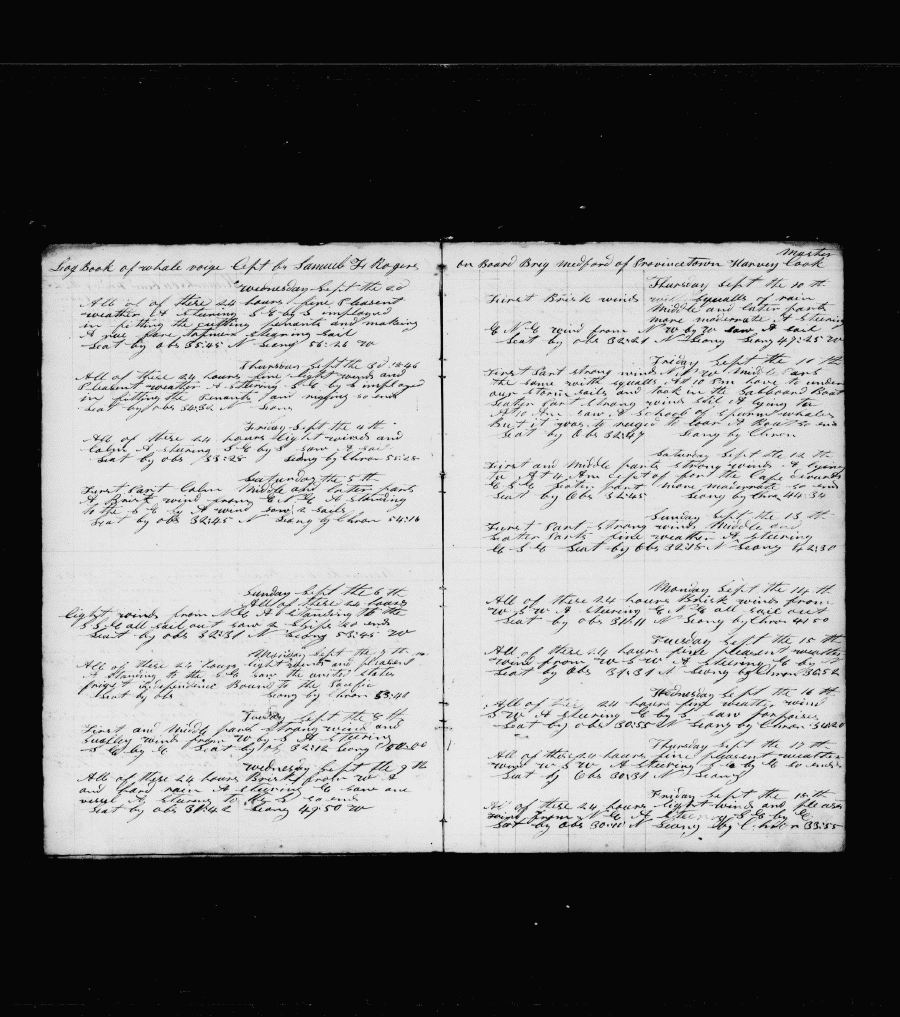 Log Book of whale voige Cept by Samuel F Rogers
Wednesday Sept the 2d
All of these 24 hours fine Pleasent
weather A Steering S E by S imployed
in fitting the cutting penants and making
A nue fore topmust stearing Sail
Lat by obs 35:45 N Long 56:26 W
Thursday Sept the 3d
All of these 24 hours fine light winds and
Pleasent weather A Steering S E by S imployed
in fitting the Penants and so ends
Lat by obs 34:34 N Long
Friday Sept the 4 th
All of these 24 hours light winds and
Calm A steering S E by S saw A sail
Lat by obs 33:28 Long by Chron 55:28
Saturday the 5 th
Furst Part Calm Middle and later parts
A Brisk wind from E N E A Standing
to the S E by A wind saw 2 sails
Lat by obs 32:45 N Long by Chron 54:16
Sunday Sept the 6 th
All of these 24 hours
light winds from N E A Standing to the
S S E all sail out saw 2 Ships so ends
Lat by obs 32:31 N Long 53:45 W
Monday Sept the 7 th
All of these 24 hours light winds and pleasent
A Standing to the S E saw the united States
frigit independince Bound to the Pacific
Lat by obs Long by Chron 53:40
Tuesday Sept the 8 th
First and Middle parts strong winds and
Squalley winds from W by S A Steering
S E by E Lat by obs 32:12 Long 50:00
Wednesday Sept the 9 th
All of these 24 hours Brisk from W A
and hard rain A steering E saw one
vessel A steering to so ends
Lat by obs 31:42 Long 49:50 W
on Board Brig Medford of Provincetown Harvey Cook
Master
Thursday Sept the 10 th
Furst Brisk winds with squalls of rain
Middle and later parts
more moderate A Steering
E N E wind from N W by W saw A sail
Lat by obs 32:21 Long 47:25 W
Friday Sept the 11 th
First Part strong winds N W Middle Part
the same with squalls At 10 Pm hove to under
our Storm Sails and took in the Labboard Boat
Later Part strong winds still A lying to
At 10 Am saw A School of Spurm whales
But it was to rugid to loar A Boat so ends
Lat by Obs 32:47 Long by Chron
Saturday Sept the 12 th
First and Middle parts strong winds A lying
to At 4 Am cept of for the Cape
E S E Later part more moderate so ends
Lat by Obs 32:45 Long by Chro 44:34
Sunday Sept the 13 th
Furst Part strong winds Middle and
Later Parts fine weather A Steering
E S E Lat by Obs 32:18 N Long 42:30
Monday Sept the 14 th
All of these 24 hours Brisk winds from
W S W A Steering E N E all sail out
Lat by obs 31:11 N Long by Chron 41:50
Tuesday Sept the 15 th
All of these 24 hours fine pleasent weather
wind from W S W A Steering E by N
Lat by Obs 31:31 N Long by Chron 36:52
Wednesday Sept the 16 th
All of these 24 hours fine weather wind
S W A Steering E by S saw Porpoises
Lat by obs 30:55 N Long by Chron 34:20
Thursday Sept the 17 th
All of these 24 hours fine pleasent weather
wind W S W A Steering S E by E so ends
Lat by Obs 30:31 N Long
Friday Sept the 18 th
All of these 24 hours light wind and pleas
wind from N E A Steering S E by E
Lat by Obs 30:10 N Long by Chron 33:55